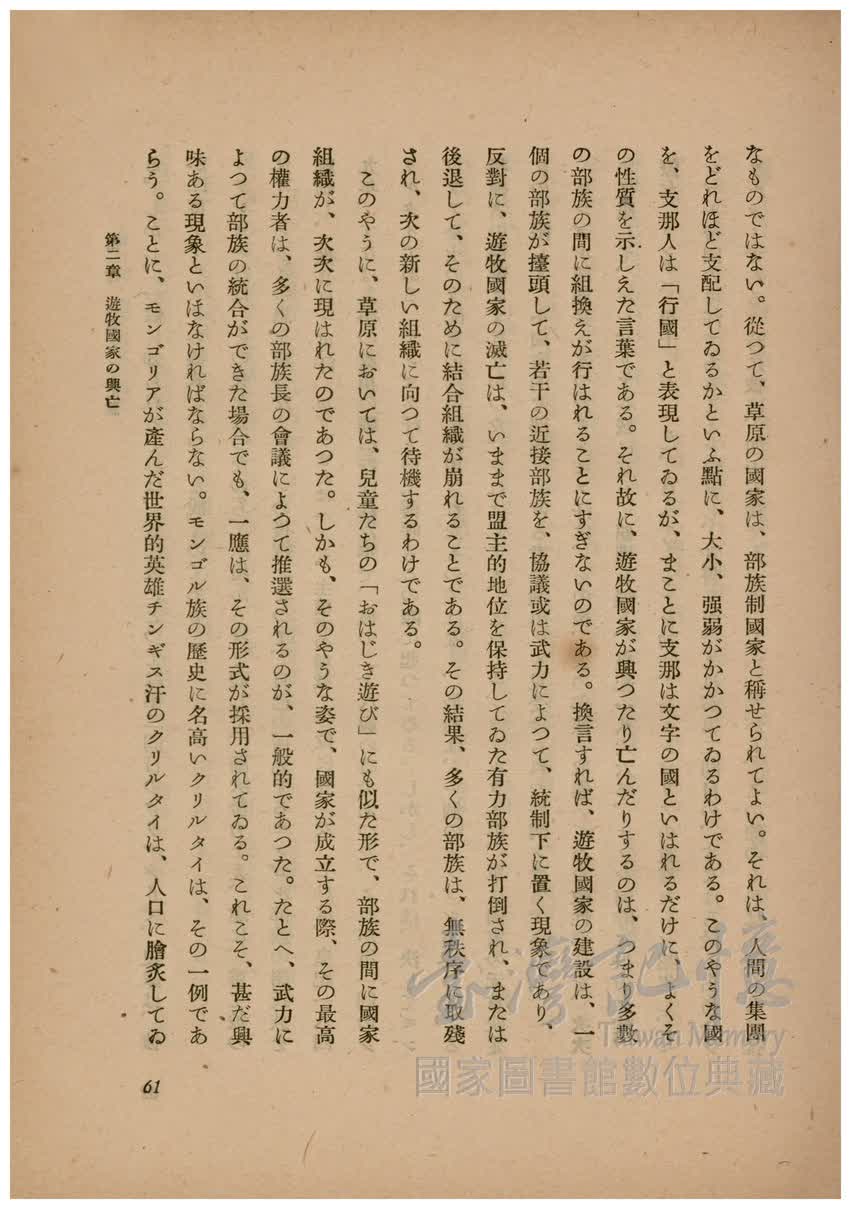 なものではない。從つて、草原の國家は、部族制國家と稱せられてよい。それは、人間の集團
をどれほど支配してゐるかといふ點に、大小、强弱がかかつてゐるわけである。このやうな國
を、支那人は「行國」と表現してゐるが、まことに支那は文字の國といはれるだけに、よくそ
の性質を示しえた言葉である。それ故に、遊牧國家が興つたり亡んだりするのは、つまり多數
の部族の間に組換えが行はれることにすぎないのである。換言すれば、遊牧國家の建設は、一
個の部族が擡頭して、若干の近接部族を、協議或は武力によつて、統制下に置く現象であり、
反對に、遊牧國家の滅亡は、いままで盟主的地位を保持してゐた有力部族が打倒され、または
後退して、そのために結合組織が崩れることである。その結果、多くの部族は、無秩序に取殘
され、次の新しい組織に向つて待機するわけである。
このやうに、草原においては、兒童たちの「おはじき遊び」にも似た形で、部族の間に國家
組織が、次次に現はれたのであつた。しかも、そのやうな姿で、國家が成立する際、その最高
の權力者は、多くの部族長の會議によつて推選されるのが、一般的であつた。たとへ、武力に
よつて部族の統合ができた場合でも、一應は、その形式が採用されてゐる。これこそ、甚だ興
味ある現象といはなければならない。モンゴル族の歷史に名高いクリルタイは、その一例であ
らう。ことに、モンゴリアが產んだ世界的英雄チンギス汗のクリルタイは、人口に膾炙してゐ
第二章 遊牧國家の興亡
61
臺灣記憶
Taiwan Memory
國家圖書館數位典藏